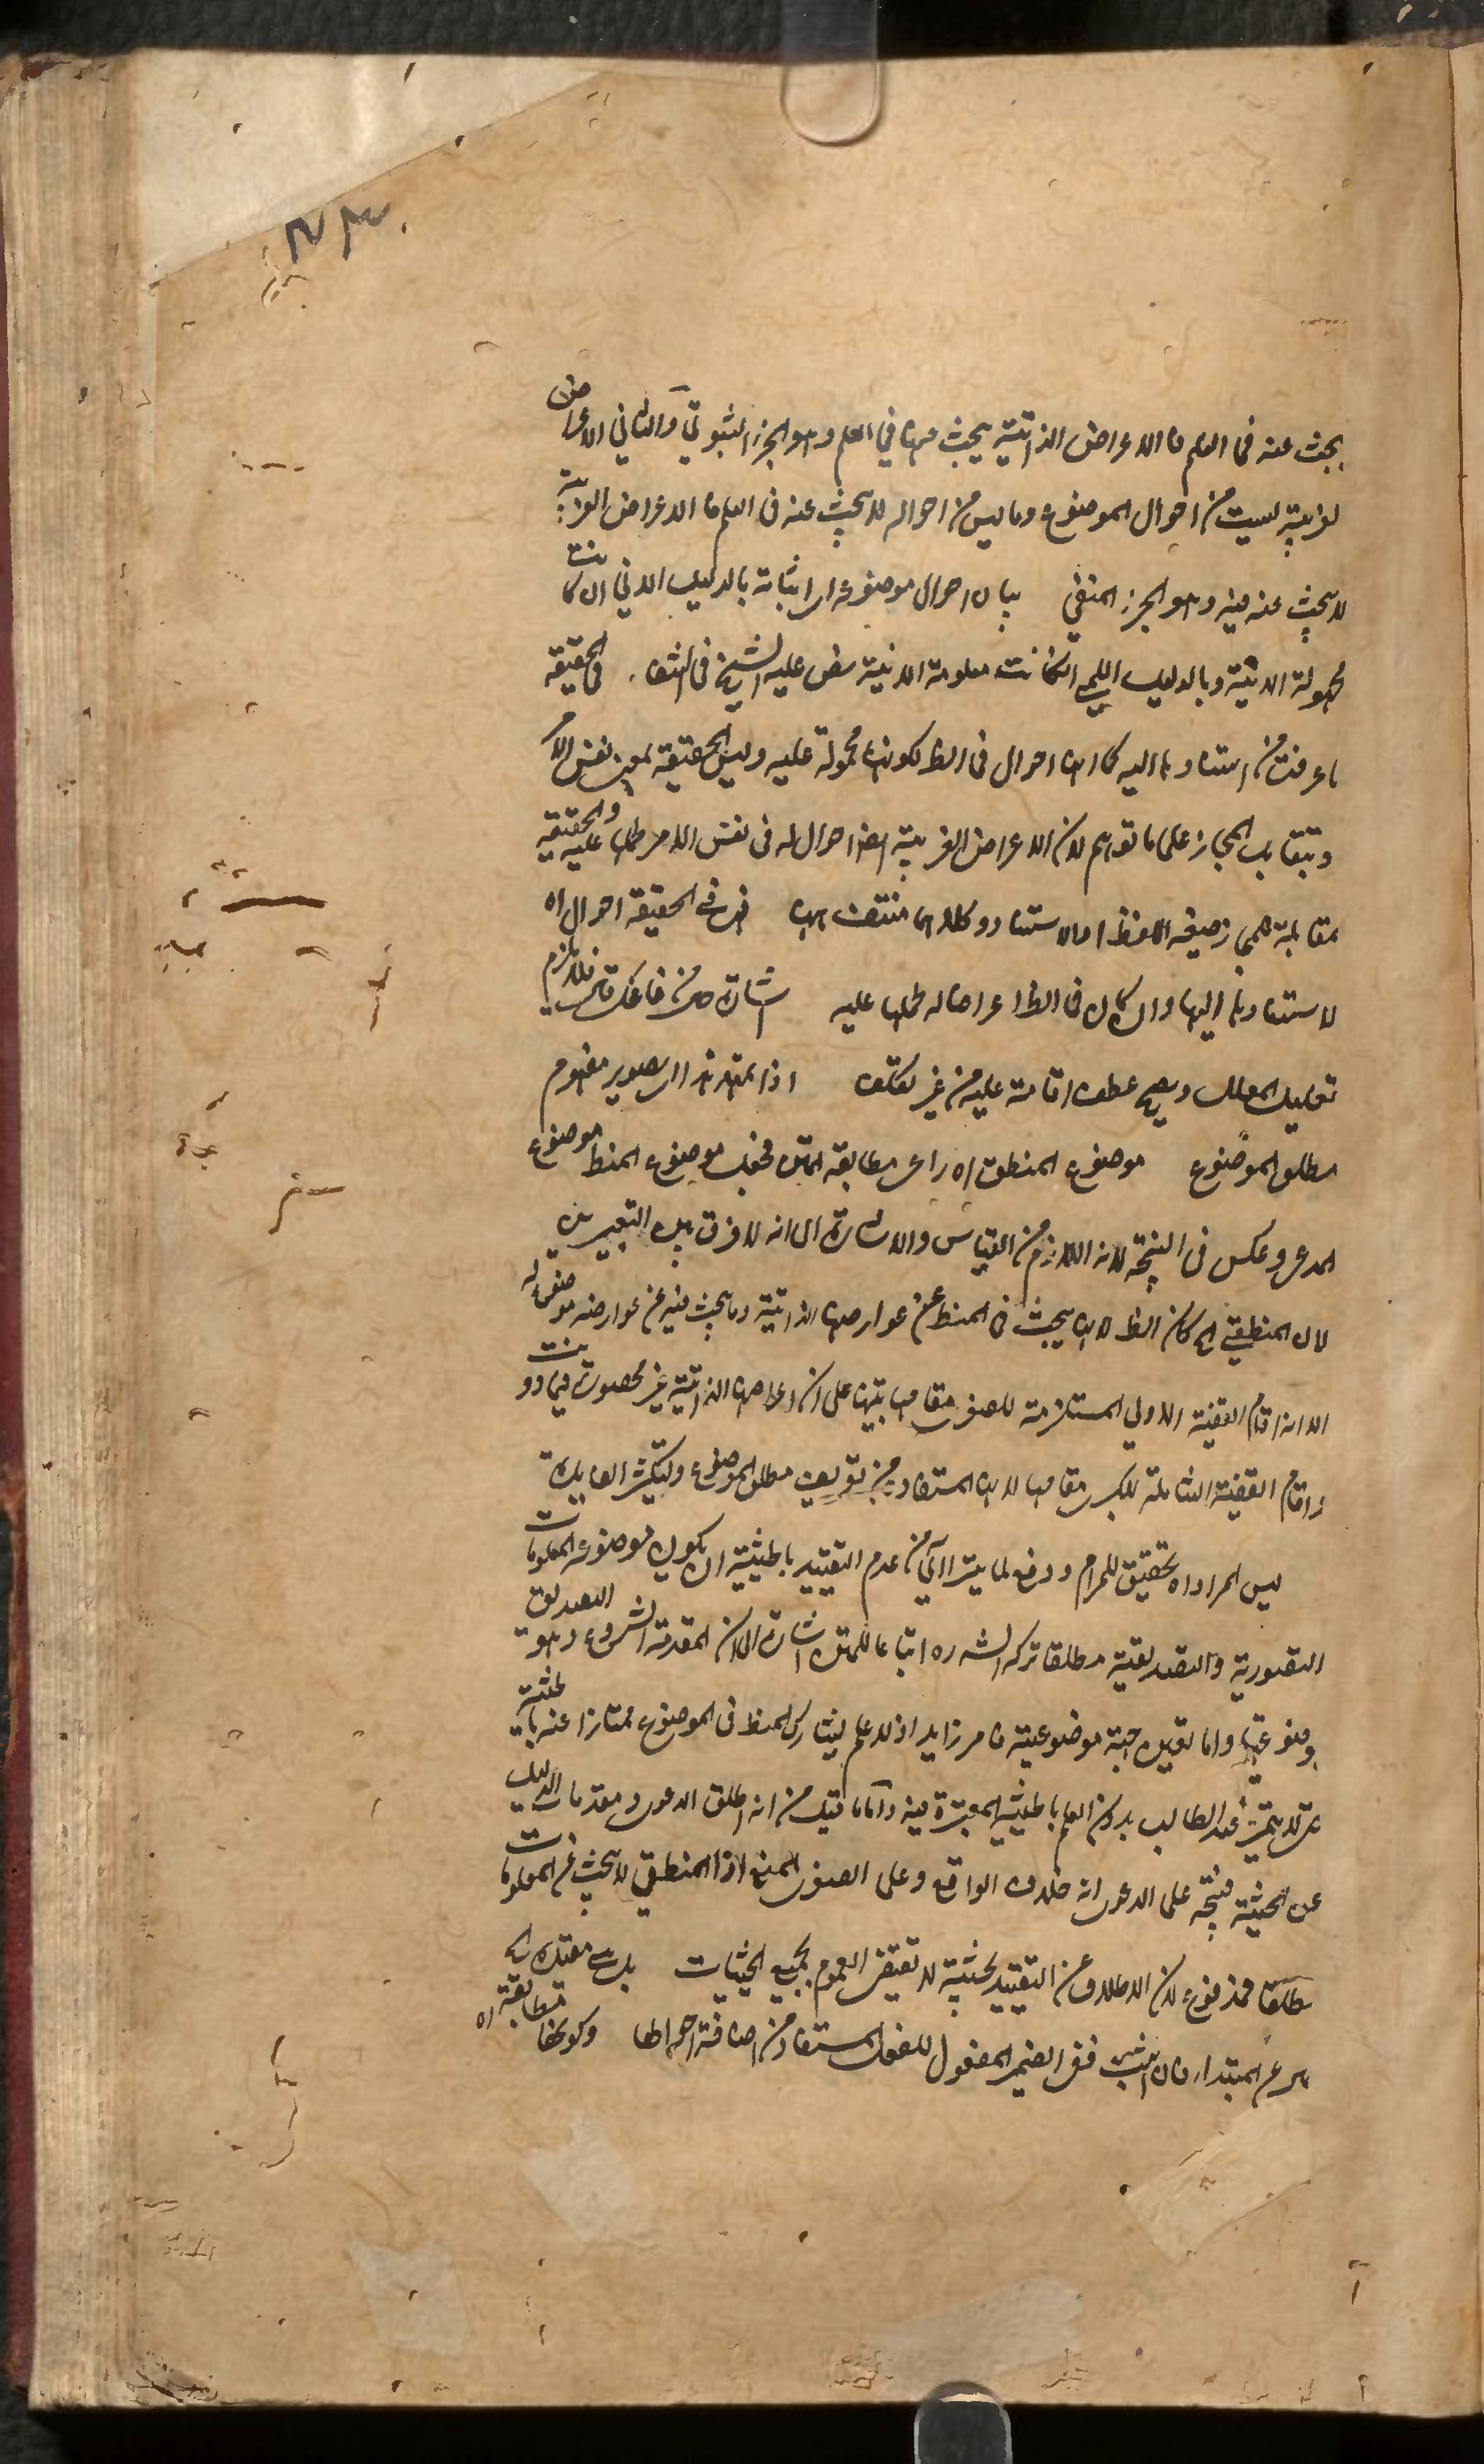 يبحث عنه فى العلم فالاعراض الذاتية يبحث عنها في العلم وهو الجزء الثبوتي والثاني الاعراض
الغريبة ليست من احوال الموضوع وما ليس من احواله لا يبحث عنه فى العلم فالاعراض الغريبة
لا يبحث عنه فيه وهو الجزء المنفي بيان احوال موضوعه اى اثباته بالدليل الاني ان كانت
مجهولة الانية وبالدليل اللمي ان كانت معلومة الانية نص عليه الشيخ فى الشفاء فى الحقيقة
ما عرفت من استنادها اليه كما انها احوال فى الظ لكونها محمولة عليه وليس الحقيقة بمعنى نفس الامر
وتقابل المجاز على ما توهم لان الاعراض الغريبة ايضا احوال له فى نفس الامر لحملها عليه والحقيقة
مقابلة للمجاز صفة اللفظ او الاستناد وكلاهما منتف ههنا فهي فى الحقيقة احوال اه
لاستنادها اليها وان كان فى الظ اعراضا له لحملها عليه
تعليل المعلل ويصح عطف اقامة عليه من غير تكلف اذا تمهد هذا اى تصوير مفهوم
مطلق الموضوع موضوع المنطق اه راعى مطابقة المتن فجعل موضوع المنط موضوع
المدعى وعكس فى النتيجة لانه اللازم من القياس والاشارة الى انه لا فرق بين التعبيرين
لان المنطقي الخ كان الظ لانها يبحث فى المنط عن عوارضها الذاتية وما يبحث فيه عن عوارضه موضوع له
الا انه اقام القضية الاولى المستلزمة للصغرى مقامها تنبيها على ان اعراضها الذاتية غير محصورة فيما دونت
واقام القضية الشاملة للكبرى مقامها لانها المستفاد من تعريف مطلق الموضوع وليكثر الفايدة
ليس المراد اه تحقيق للمرام ودفع لما يترا اى من عدم التقييد بالحيثية ان يكون موضوعه المعلومات
التصورية والتصديقية مطلقا تركه الشه ره اتباعا للمتن اشارة الى ان المقدمة الشروع وهو التصديق
بموضوعيتها واما تعيين جهة موضوعيته فامر زايد اذ لا علم يشارك المنط فى الموضوع ممتازا عنه بالحيثية
حتى لا يتميز عند الطالب بدون العلم بالحيثية المعتبرة فيه واما ما قيل من انه اطلق الدعوى ومقدمات الدليل
عن الحيثية فيتجه على الدعوى انه خلاف الواقع وعلى الصغرى المنع اذ المنطقي لا يبحث عن المعلومات
مطلقا فمدفوع لان الاطلاق عن التقييد بحيثية لا تقتضى العموم بجميع الحيثيات بل هي مقيدة الخ
المبتداء فان نفس الضمير المفعول للفعل المستفاد من اضافة احوالها وكونها مطابقة اه